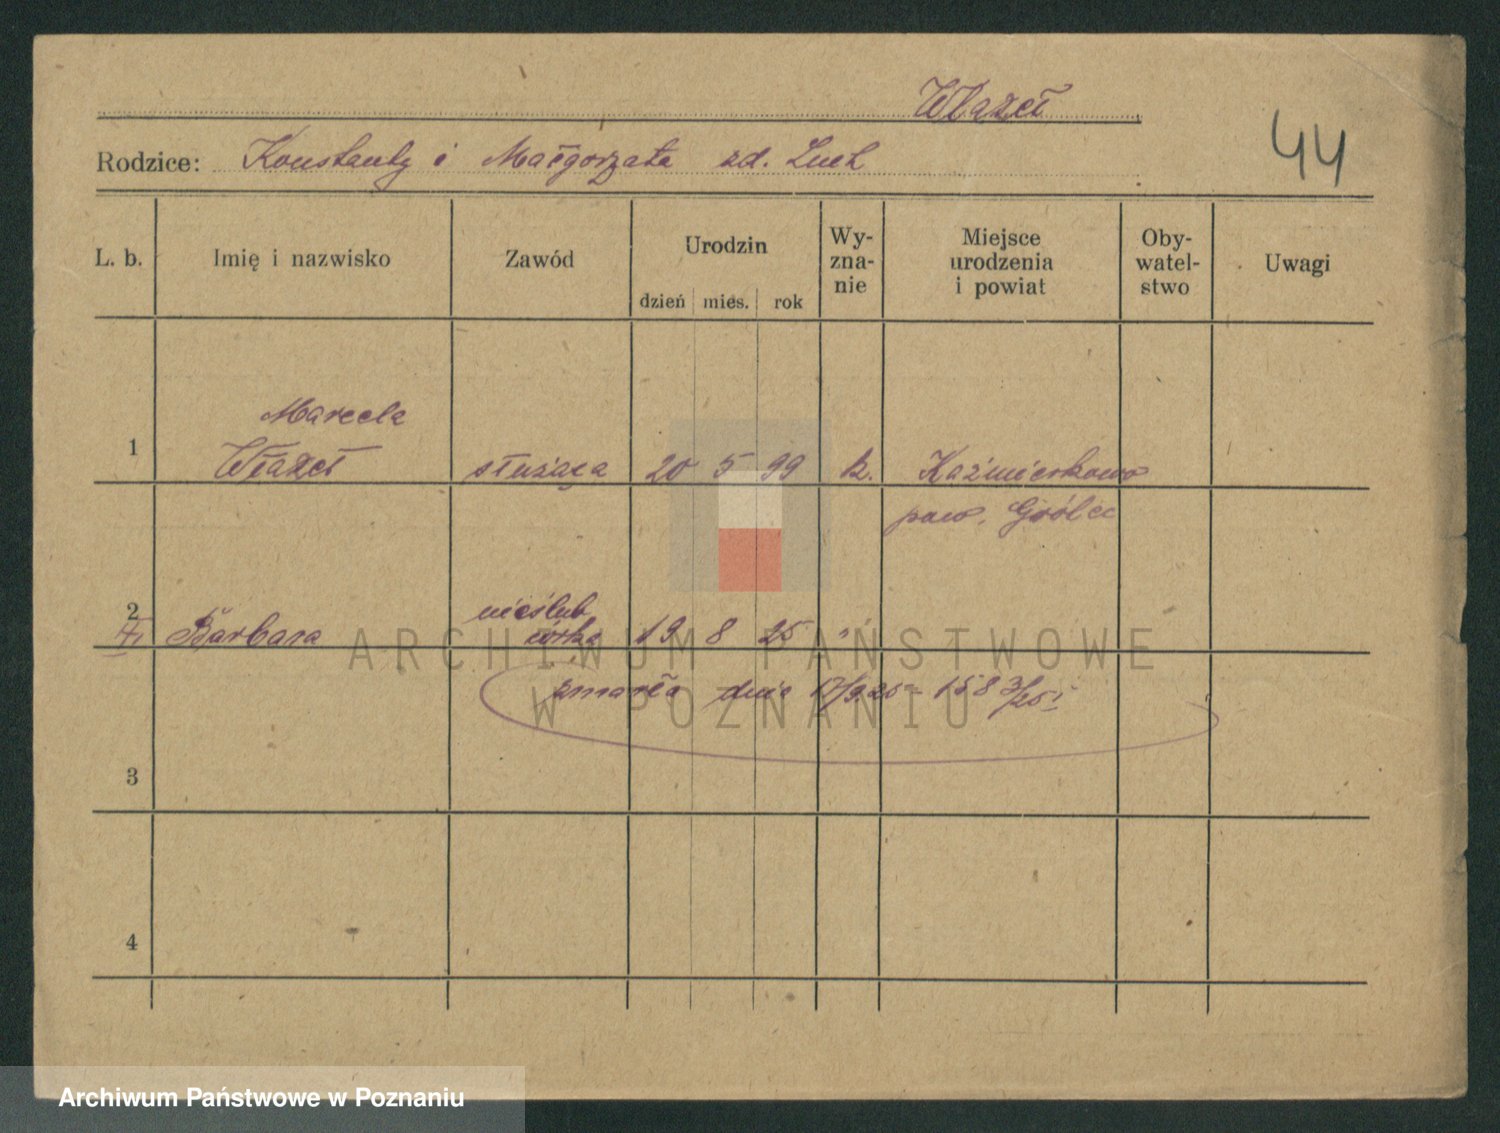 Włazeł
44
Rodzice: Konstanty i Małgorzata zd. Luch
L. b. Imię i nazwisko Zawód Urodzin Wy-zna-nie Miejsce urodzenia i powiat Oby-watel-stwo Uwagi
dzień mies. rok
Marcela
1 Włazeł służąca 20 5 99 k. Kaźmierkowo
pow. Grólec
nieślub
2 Barbara córka 19 8 25 "
ARCHIWUM PAŃSTWOWE
zmarła dnia 17/9 25 - 158
W POZNANIU
3
4
Archiwum Państwowe w Poznaniu